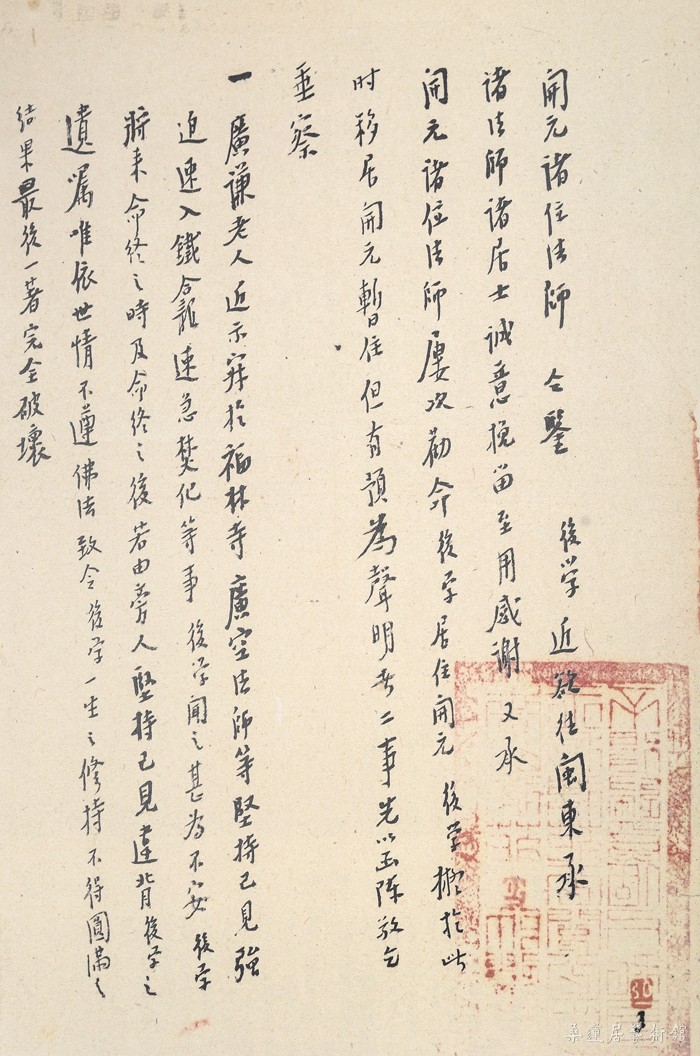 開元諸位法師 仝鑒 後学近欲往閩東承
諸法師諸居士誠意挽留至用感謝又承
開元諸位法師屢次勸命後学居住開元 後学擬於此
时移居開元暫住但有預為聲明者二事先以函陳敬乞
垂察
一 廣謙老人近示寂於福林寺 廣空法師等堅持己見強
迫速入鐵合龕速急焚化等事 後学聞之甚为不安 後学
將来命終之時及命終之後若由旁人堅持己見違背後学之
遺嘱唯依世情不遵佛法致令後学一生之修持不得圓满之
结果最後一著完全破壞
3